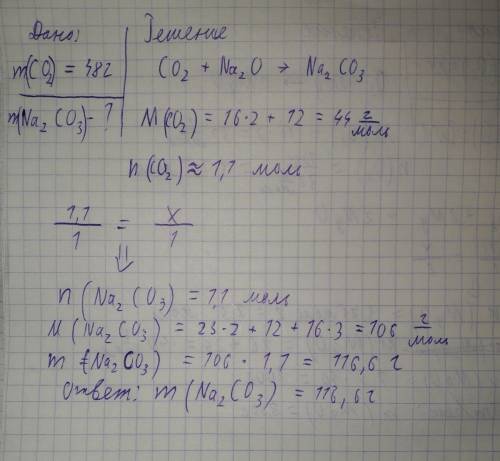 Дано: Решение
m(CO2) = 48г CO2 + Na2O → Na2CO3
m(Na2CO3) - ? M(CO2) = 16·2 + 12 = 44 г/моль
n(CO2) ≈ 1,1 моль
1,1/1 = x/1
⇓
n(Na2CO3) = 1,1 моль
M(Na2CO3) = 23·2 + 12 + 16·3 = 106 г/моль
m(Na2CO3) = 106 · 1,1 = 116,6 г
Ответ: m(Na2CO3) = 116,6г